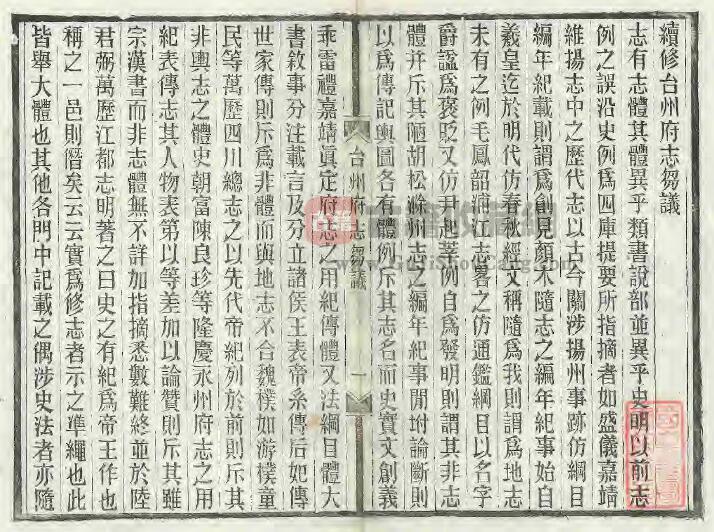 續修台州府志芻議
志有志體其體異乎類書說部並異乎史明以前志
例之誤沿史例爲四庫提要所指摘者如盛儀嘉靖
維揚志中之歷代志以古今關涉揚州事跡仿綱目
編年紀載則謂爲創見顏木隨志之編年紀事始自
羲皇迄於明代仿春秋經文稱隨爲我則謂爲地志
未有之例毛鳳韶浦江志畧之仿通鑑綱目以名字
爵謚爲褒貶又仿尹起莘例自爲發明則謂其非志
體并斥其陋胡松滁州志之編年紀事閒坿論斷則
以爲傳記輿圖各有體例斥其志名而史實文創義
台州府志芻議
一
乖雷禮嘉靖眞定府志之用紀傳體又法綱目體大
書敘事分注載言及分立諸侯王表帝系傳后妃傳
世家傳則斥爲非體而與地志不合魏樸如游樸童
民等萬歷四川總志之以先代帝紀列於前則斥其
非輿志之體史朝富陳良珍等隆慶永州府志之用
紀表傳志其人物表第以等差加以論贊則斥其雖
宗漢書而非志體無不詳加指摘悉數難終並於陸
君弼萬歷江都志明著之曰史之有紀爲帝王作也
稱之一邑則僭矣云云實爲修志者示之準繩也此
皆舉大體也其他各門中記載之偶涉史法者亦隨
古籍收藏網